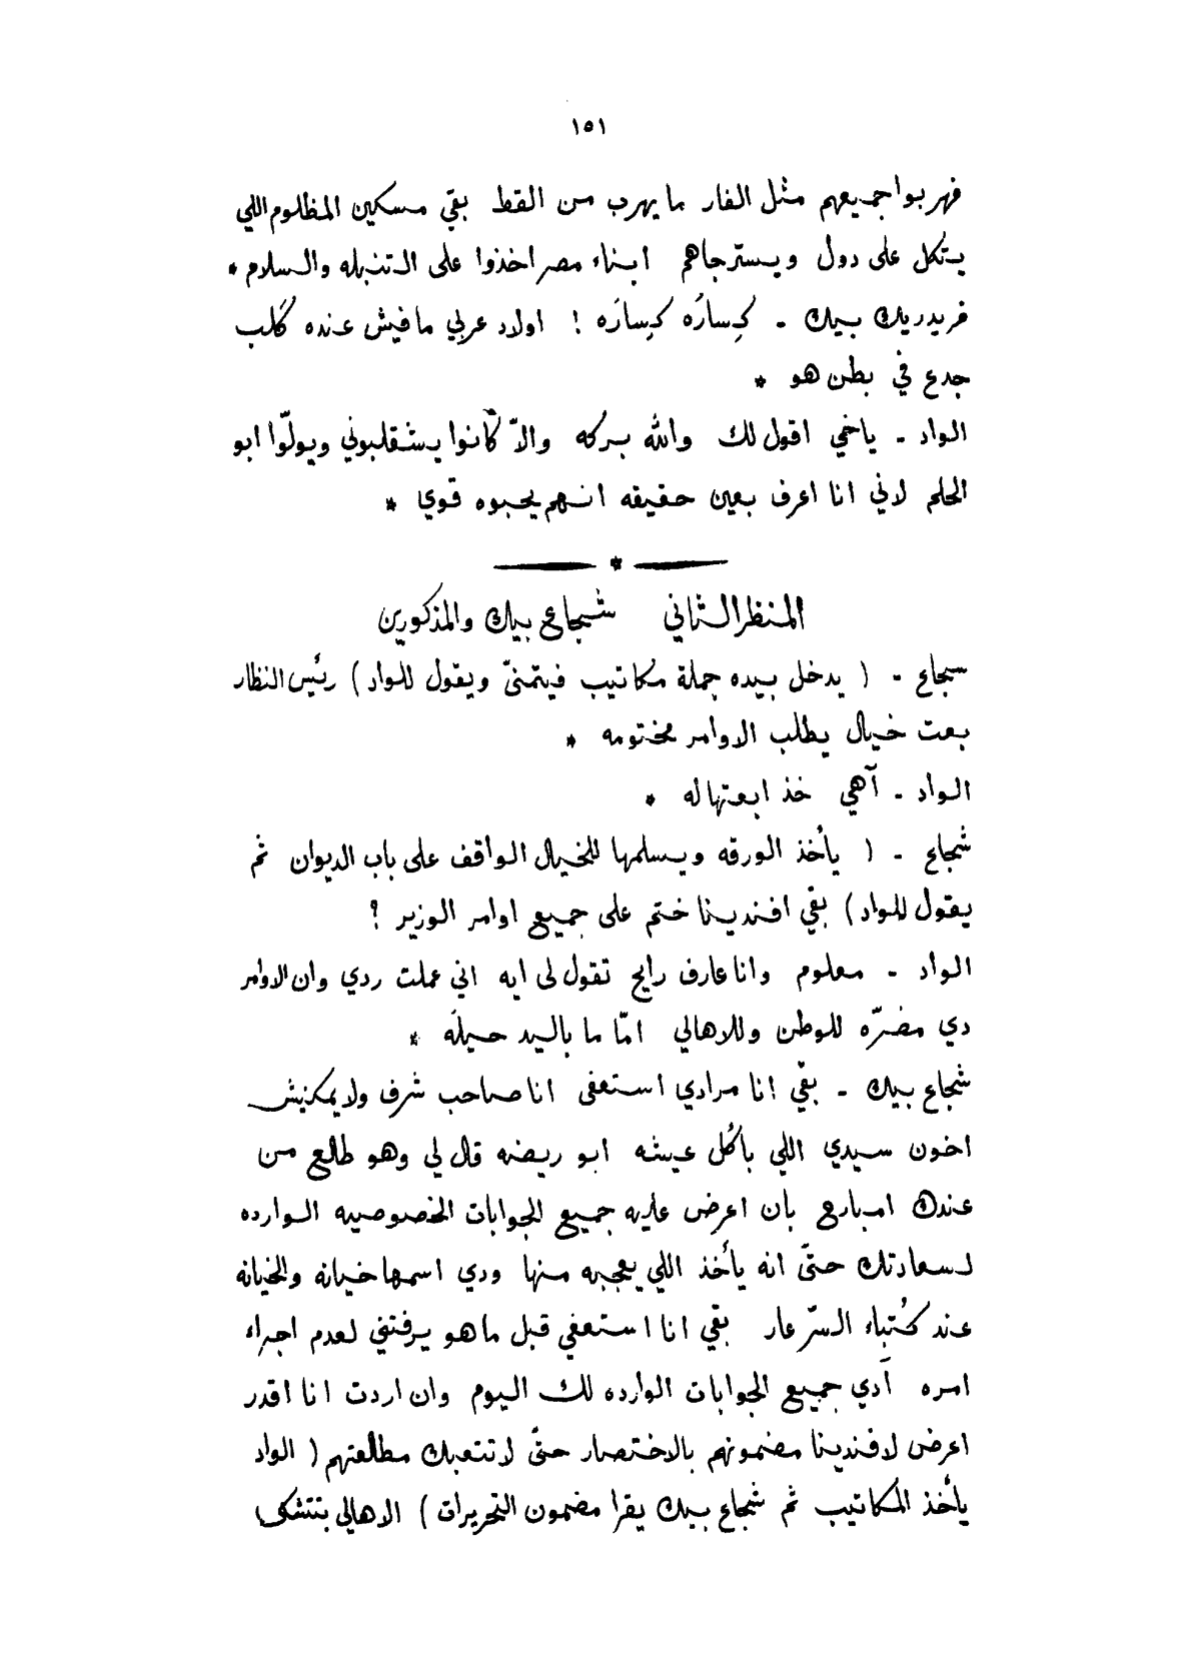 ١٥١
فهربوا جميعهم مثل الفار ما يهرب من القط بقي مسكين المظلوم اللي
يتكل على دول ويسترجاهم ابناء مصر اخذوا على التنبله والسلام *
فريدريك بيك - كِسارَه كِسارَه ! اولاد عربي مافيش عنده كَلب
جدع في بطن هو *
الواد - ياخي اقول لك والله بركه والاّ كانوا يشقلبوني ويولّوا ابو
الحلم لاني انا اعرف بعين حقيقه انهم يحبوه قوي *
*
المنظر الثاني شجاع بيك والمذكورين
سجاع - ( يدخل بيده جملة مكاتيب فيتمنىّ ويقول للواد ) رئيس النظار
بعت خيال يطلب الاوامر مختومه *
الواد - آهي خذ ابعتها له *
شجاع - ( يأخذ الورقه ويسلمها للخيال الواقف على باب الديوان ثم
يقول للواد ) بقي افندينا ختم على جميع اوامر الوزير ؟
الواد - معلوم وانا عارف رايح تقول لى ايه اني عملت ردي وان الاوامر
دي مضرّه للوطن وللاهالي امّا ما باليد حيلَه *
شجاع بيك - بقّي انا مرادي استعفى انا صاحب شرف ولا يمكنيش
اخون سيدي اللي باكُل عيشه ابو ريضه قال لي وهو طالع من
عندك امبارح بان اعرض عليه جميع الجوابات الخصوصيه الوارده
لسعادتك حتّى انه يأخذ اللي يعجبه منها ودي اسمها خيانه والخيانه
عند كُتباء السّر عار بقي انا استعفي قبل ما هو يرفتني لعدم اجراء
امره آدي جميع الجوابات الوارده لك اليوم وان اردت انا اقدر
اعرض لافندينا مضمونهم بالاختصار حتّى لا تتعبك مطالعتهم ( الواد
يأخذ المكاتيب ثم شجاع بيك يقرا مضمون التحريرات ) الاهالى بتتشكى